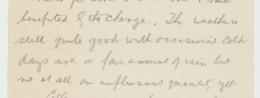 benefited by the change. The weather is
still quite good with occasional cold
days and a fair amount of rain but
not at all an unpleasant quantity yet